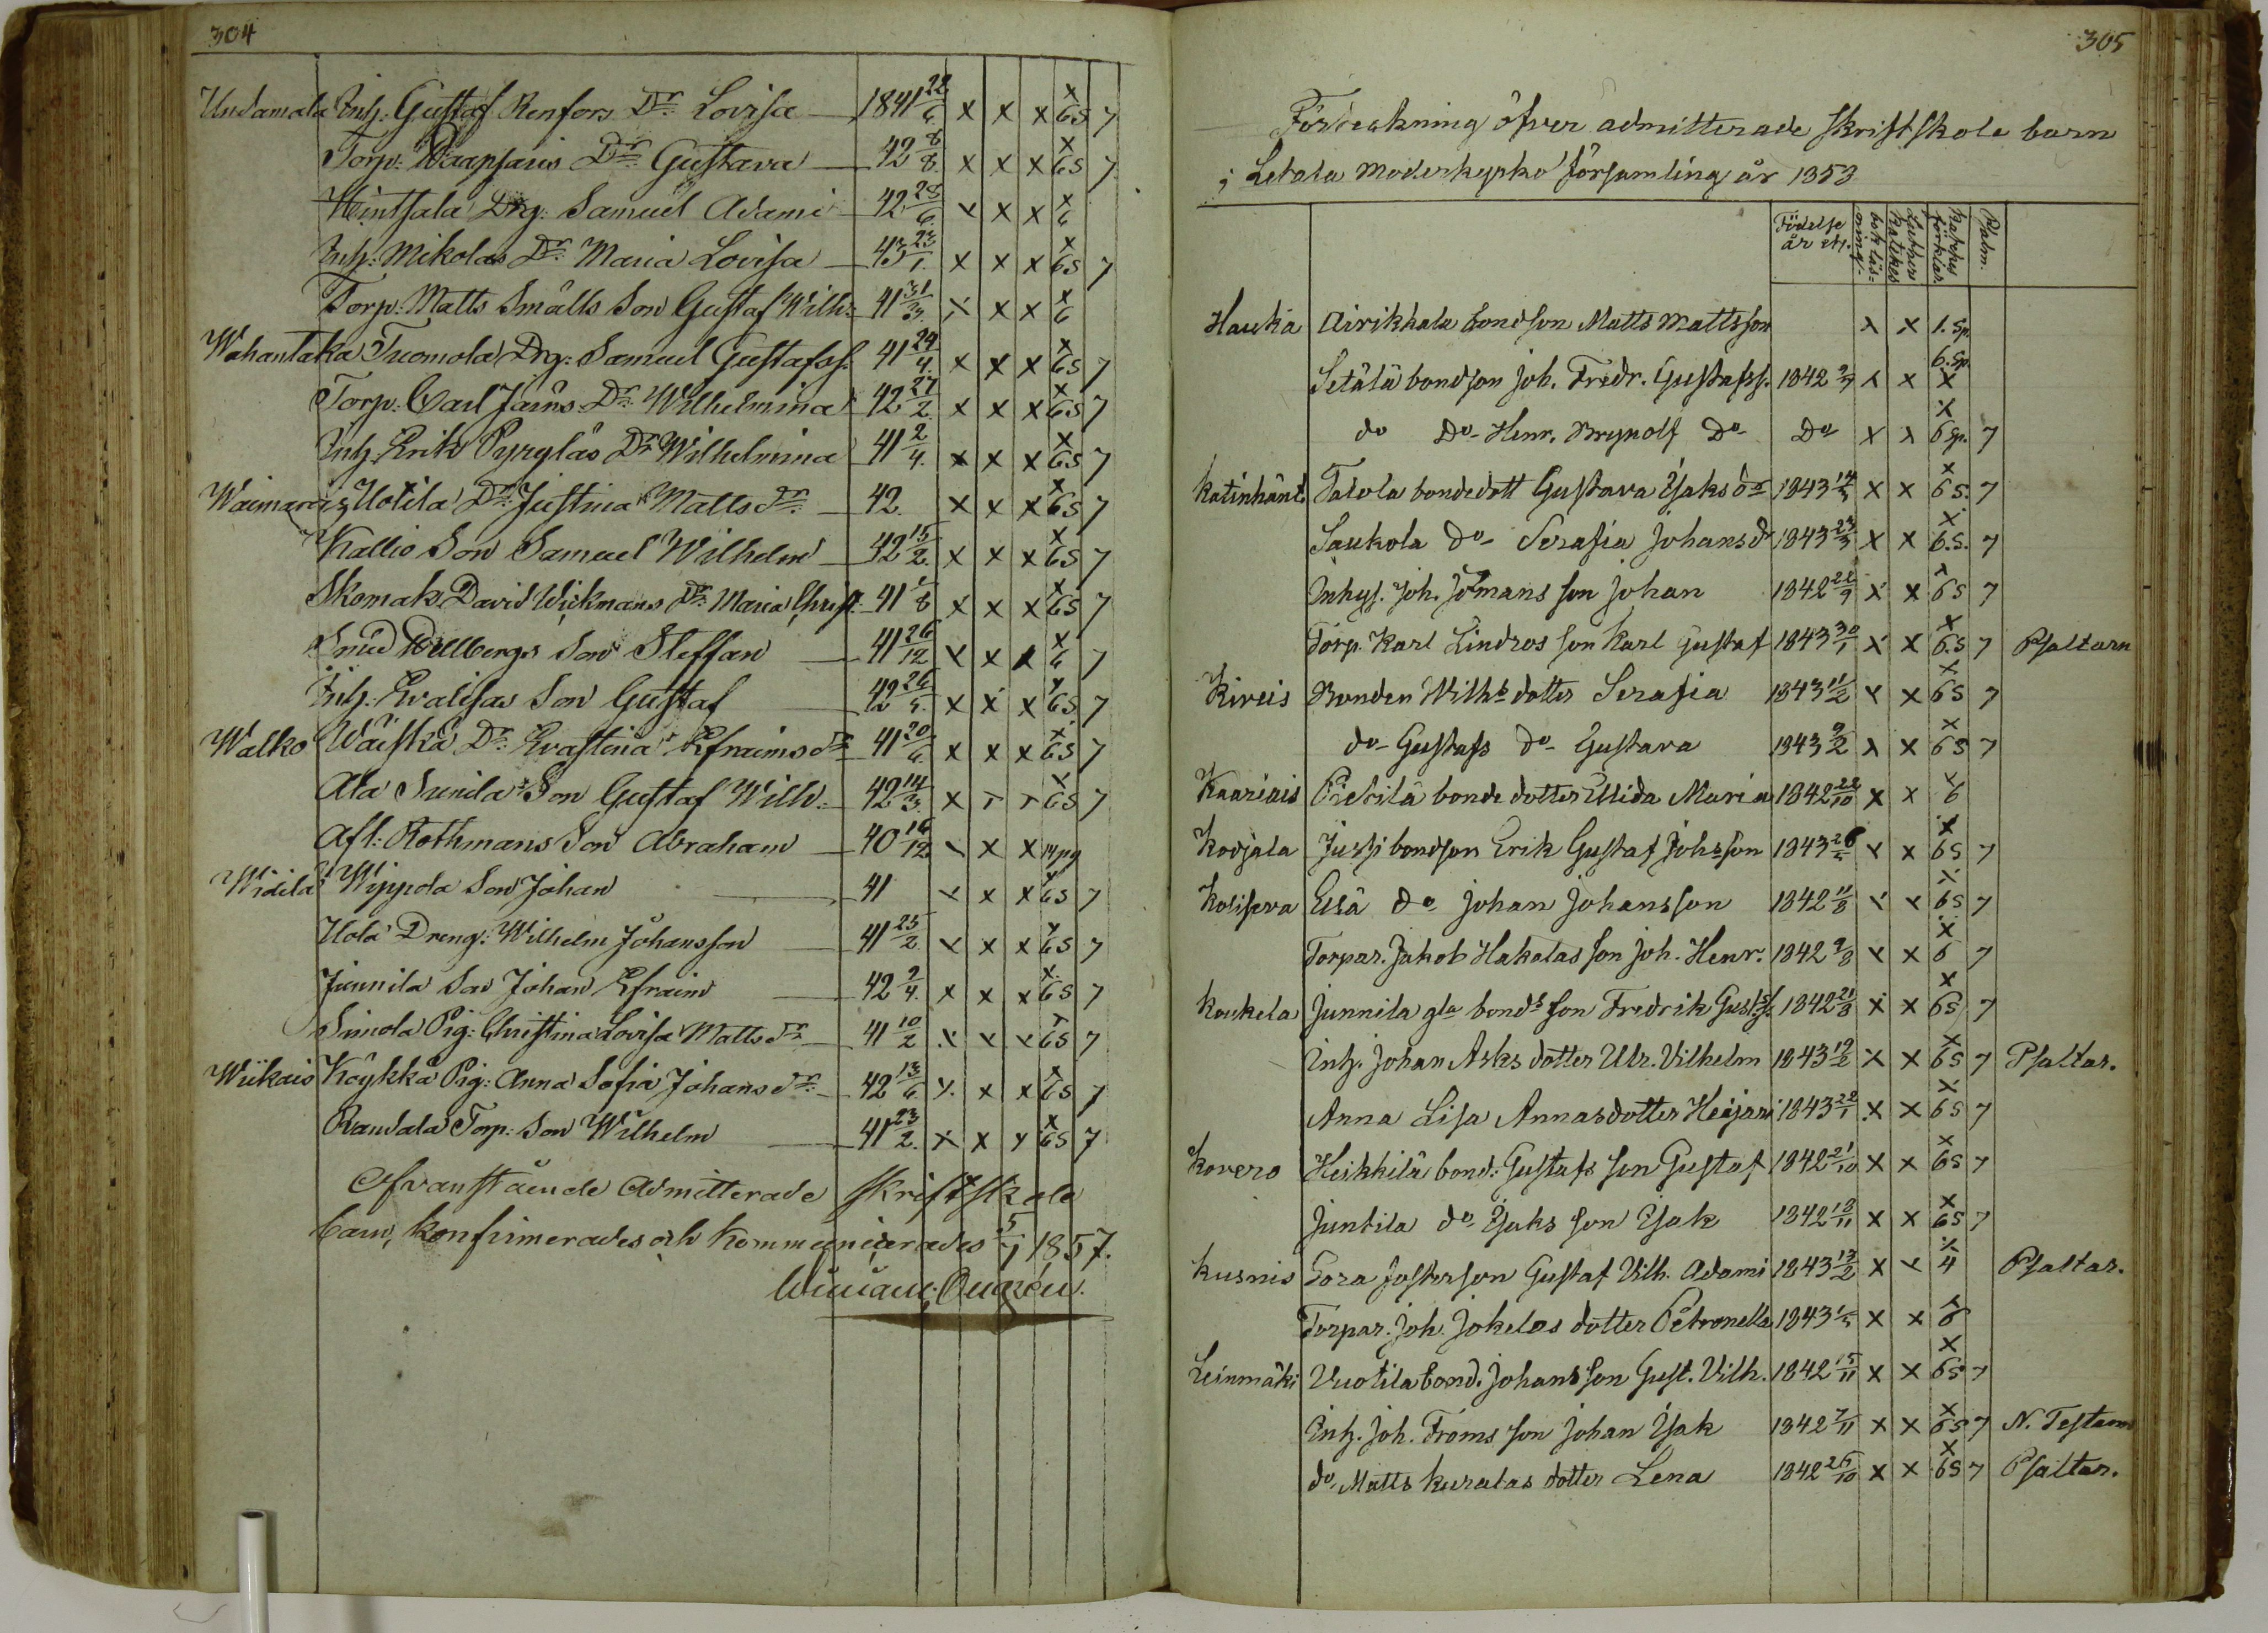 304
Undamala Inh: Gustaf Renfors Dr. Lovisa 1841 22/6 x x x x 6S 7
Torp: Dr. Gustava 42 8/8 x x x x 6S 7
Hintsala Drg: Samuel Adami 42 28/6 x x x x 6
Inh: Mikolas Dr. Maria Lovisa 43 23/1 x x x x 6S 7
Torp: Matts Smålls Son Gustaf Wilh: 41 31/3 x x x x 6
Wahantaka Tuomola Drg: Samuel Gustafss. 41 24/4 x x x x 6S 7
Torp: Carl Jarns Dr. Wilhelmina 42 27/2 x x x x 6S 7
Inh Erik Pyryläs Dr. Wilhelmina 41 2/4 x x x x 6S 7
Uotila Dr. Justina Matts dr. 42 x x x x 6S 7
Kallio Son Samuel Wilhelm 42 15/2 x x x x 6S 7
Skomak. David Wickmans Dr. Maria Christ: 41 1/8 x x x x 6S 7
Son Steffan 41 26/12 x x x x 6 7
Inh: Son Gustaf 42 26/5 x x x x 6S 7
Walko Wäiskä Dr. Evastina Efraims dr 41 20/6 x x x x 6S 7
Ala Sunila Son Gustaf Wilh: 42 14/3 x x 6S 7
Afl: Rothmans Son Abraham 40 16/12 x x x
Widilä Wippola Son Johan 41 x x x x 6S 7
Uola Dreng: Wilhelm Johansson 41 25/2 x x x x 6S 7
Junnila Son Johan Efraim 42 2/4 x x x x 6S 7
Simola Pig: Christina Lovisa Matts dr. 41 10/2 x x x x 6S 7
Wiikais Köykkä Pig: Anna Sofia Johans dr. 42 13/6 x x x x 6S 7
Randala Torp: Son Wilhelm 41 23/2 x x x x 6S 7
Ofvanstående Admitterade Skriftskole
barn, konfirmerades och kommunicerades 5/7 1857.
305
Förteckning öfver admitterade skriftskole barn
i Letala Moderkyrko församling år 1858
Födelse år etc.
Luthers Katekes
Katekes förklar.
Psalm.
Hauka Airikkala bondson Matts Mattsson x x 1. Sp.
Setälä bondson Joh. Fredr. Gustafss. 1842 9/7 x x 6. Sp. x
do Do Henr. Brynolf Do Do x x x 6 Sp. 7
Katinhänt. Talola bondedott Gustava Isaks dr 1843 14/5 x x x 6 S. 7
Saukola do Serafia Johans dr 1843 23/3 x x x 6. S. 7
Inhys. Joh. son Johan 1842 22/9 x x x 6S 7
Torp. Karl Lindros son Karl Gustaf 1843 30/1 x x x 6.S 7 Psaltarn
Kiveis Bonden Wilhs dotter Serafia 1843 11/2 x x x 6S 7
do Gustafs do Gustava 1843 9/2 x x x 6S 7
Kaariais Pietilä bonde dotter Ulrida Maria 1842 22/10 x x x 6
Kodjala Jussi bondson Erik Gustaf Johsson 1843 26/5 x x x 6S 7
Koliseva Eisä do Johan Johansson 1842 11/8 x x x 6S 7
Torpar. Jakob Hakalas son Joh. Henr. 1842 9/8 x x x 6 7
Koukela Junnila gla bonds son Fredrik Gusts. 1842 21/8 x x x 6S 7
Inh. Johan Asks dotter Ulr. Vilhelm 1843 19/6 x x x 6S 7 Psaltar.
Anna Lisa Annasdotter Heijari 1843 22/1 x x x 6S 7
Kovero Heikkilä bond. Gustafs son Gustaf 1842 21/10 x x x 6S 7
Juntila do Isaks son Isak 1842 18/11 x x x 6S 7
Kusnis Gora fosterson Gustaf Vilh. Adami 1843 13/2 x x x 4 Psaltar.
Torpar. Joh. Jokelas dotter Petronella 1843 1/5 x x x 6
Leinmäki Vuotila bond. Johans son Gust. Vilh. 1842 15/11 x x x 6S 7
Inh. Joh. Froms son Johan Isak 1842 7/11 x x x 6S 7 N. Testam
do. Matts Kuralas dotter Lena 1842 26/10 x x x 6S 7 Psaltar.